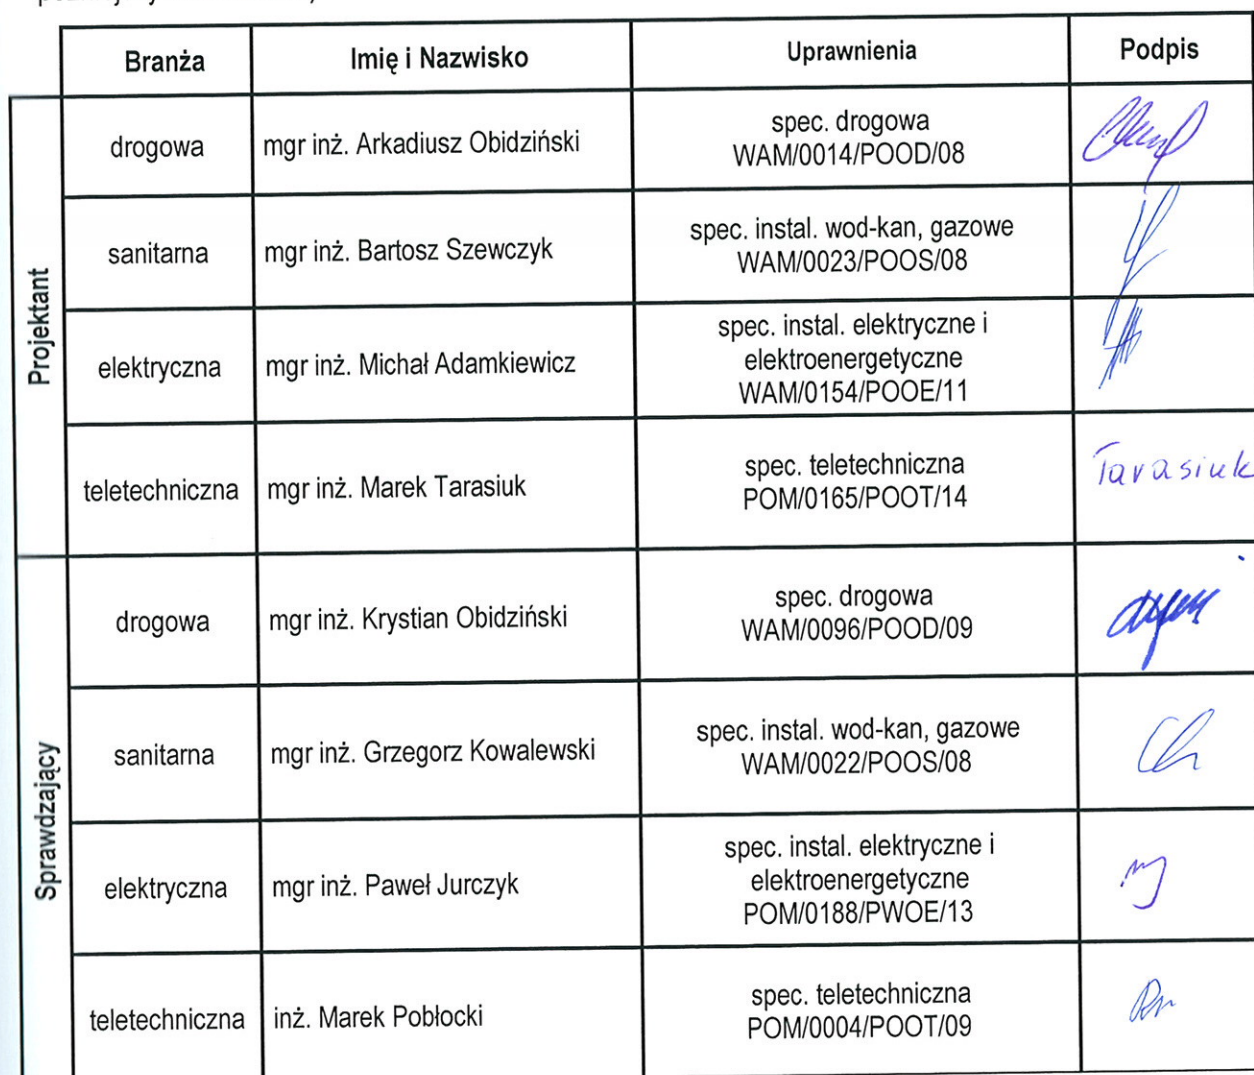 Branża Imię i Nazwisko Uprawnienia Podpis
Projektant
drogowa mgr inż. Arkadiusz Obidziński spec. drogowa
WAM/0014/POOD/08
sanitarna mgr inż. Bartosz Szewczyk spec. instal. wod-kan, gazowe
WAM/0023/POOS/08
elektryczna mgr inż. Michał Adamkiewicz spec. instal. elektryczne i
elektroenergetyczne
WAM/0154/POOE/11
teletechniczna mgr inż. Marek Tarasiuk spec. teletechniczna
POM/0165/POOT/14 Tarasiuk
Sprawdzający
drogowa mgr inż. Krystian Obidziński spec. drogowa
WAM/0096/POOD/09
sanitarna mgr inż. Grzegorz Kowalewski spec. instal. wod-kan, gazowe
WAM/0022/POOS/08
elektryczna mgr inż. Paweł Jurczyk spec. instal. elektryczne i
elektroenergetyczne
POM/0188/PWOE/13
teletechniczna inż. Marek Pobłocki spec. teletechniczna
POM/0004/POOT/09